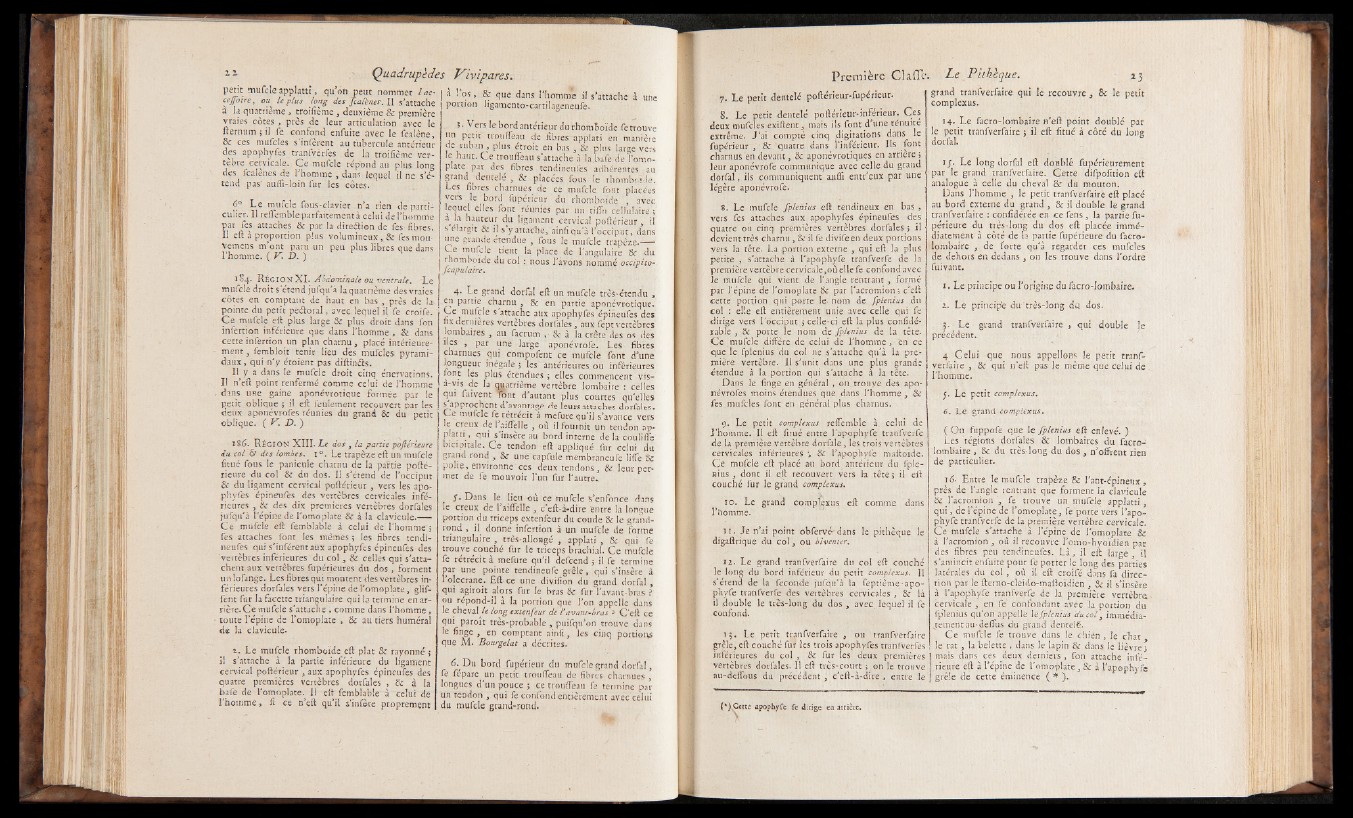 22 Quadrupèdes Vivipares.
petit muscle applatti, qu'on peut nommer l'ac-
cessoire, ou le plus long des scalèner. Il s'attache
à la quatrième, troisième, deuxième & première
vraies côtes, près de leur articulation avec le
sternum; il se confond ensuite avec le scalène,
& ces muscles s'insèrent au tubercule antérieur
des apophyses transverses de la troisième ver-
tèbre cervicale. Ce muscle répond au plus long
des scalènes de l'homme, dans lequel il ne s'é-
tend pas aussi-loin sur les côtes.
6° Le muscle sous-clavier n'a rien de parti-
culier. Il ressemble parfaitement à celui de l'homme
par ses attaches & par la direction de ses fibres.
Il est à proportion plus volumineux, & ses mou-
vemens m'ont paru un peu plus libres que dans
l'homme. ( V. D. )
184. RÉGION XI. Abdominale ou ventrale. Le
muscle droit s'étend jusqu'à la quatrième des vraies
côtes en comptant de haut en bas, près de la
pointe du petit pectoral, avec lequel il se croise.
Ce muscle est plus large & plus droit dans son
insertion inférieure que dans l'homme, & dans
cette insertion un plan charnu, placé intérieure-
ment, sembloit tenir lieu des muscles pyrami-
daux, qui n'y étoient pas distincts.
Il y a dans le muscle droit cinq énervations.
Il n'est point renfermé comme celui de l'homme
dans une gaîne aponévrotique formée par le
petit oblique; il est seulement recouvert par les
deux aponévroses réunies du grand & du petit
oblique. ( V. D. )
186. RÉGION XIII. Le dos, la partie postérieure
du col & des lombes. 1°. Le trapèze est un muscle
situé sous le panicule charnu de la partie posté-
rieure du col & du dos. Il s'étend de l'occiput
& du ligament cervical postérieur, vers les apo-
physes épineuses des vertèbres cervicales infé-
rieures, & des dix premieres vertèbres dorsales
jusqu'à l'épine de l'omoplate & à la clavicule.——
Ce muscle est semblable à celui de l'homme;
ses attaches sont les mêmes; les fibres tendi-
neuses qui s'insèrent aux apophyses épineuses des
vertèbres inférieures du col, & celles qui s'atta-
chent aux vertèbres supérieures du dos, forment
un losange. Les fibres qui montent des vertèbres in-
férieures dorsales vers l'épine de l'omoplate, glis-
sent sur la facette triangulaire qui la termine en ar-
rière. Ce muscle s'attache, comme dans l'homme,
toute l'épine de l'omoplate, & au tiers huméral
de la clavicule.
2. Le muscle rhomboïde est plat & rayonné;
il s'attache à la partie inférieure du ligament
cervical postérieur, aux apophyses épineuses des
quatre premières vertèbres dorsales, & à la
base de l'omoplate. Il est semblable à celui de
l'homme, si ce n'est qu'il s'insère proprement
à l'os, & que dans l'homme il s'attache à une
portion ligamento-cartilageneuse.
3. Vers le bord antérieur du rhomboïde se trouve
un petit trousseau de fibres applati en manière
de ruban, plus étroit en bas, & plus large vers
le haut. Ce trousseau s'attache à la base de l'omo-
plate par des fibres tendineuses adhérentes au
grand dentelé, & placées sous le rhomboïde.
Les fibres charnues de ce muscle sont placées
vers le bord supérieur du rhomboïde, avec
lequel elles sont réunies par un tissu cellulaire;
à la hauteur du ligament cervical postérieur, il
s'élargit & il s'y attache, ainsi qu'à l'occiput, dans
une grande étendue, sous le muscle trapèze.——
Ce muscle tient la place de l'angulaire & du
rhomboïde du col: nous l'avons nommé occipito-
scapulaire.
4. Le grand dorsal est un muscle très-étendu,
en partie charnu, & en partie aponévrotique.
Ce muscle s'attache aux apophyses épineuses des
six dernières vertèbres dorsales, aux sept vertèbres
lombaires, au sacrum, & à la crête des os des
iles, par une large aponévrose. Les fibres
charnues qui composent ce muscle sont d'une
longueur inégale; les antérieures ou inférieures
sont les plus étendues; elles commencent vis-
à-vis de la quatrième vertèbre lombaire: celles
qui suivent sont d'autant plus courtes qu'elles
s'approchent d'avantage de leurs attaches dorsales.
Ce muscle se rétrécit à mesure qu'il s'avance vers
le creux de l'aisselle, où il fournit un tendon ap-
platti, qui s'insère au bord interne de la coulisse
bicipitale. Ce tendon est appliqué sur celui du
grand rond, & une capsule membraneuse lisse &
polie, environne ces deux tendons, & leur per-
met de se mouvoir l'un sur l'autre.
5. Dans le lieu où ce muscle s'enfonce dans
le creux de l'aisselle, c'est-à-dire entre la longue
portion du triceps extenseur du coude & le grand-
rond, il donne insertion à un muscle de forme
triangulaire, très-allongé, applati, & qui se
trouve couché sur le triceps brachial. Ce muscle
se rétrécit à mesure qu'il descend; il se termine
par une pointe tendineuse grêle, qui s'insère à
l'olecrane. Est ce une division du grand dorsal,
qui agiroit alors sur le bras & sur l'avant-bras?
ou répond-il à la portion que l'on appelle dans
le cheval le long extenseur de l'avant-bras? C'est ce
qui paroît très-probable, puisqu'on trouve dans
le singe, en comptant ainsi, les cinq portions
que M. Bourgelat a décrites.
6. Du bord supérieur du muscle grand dorsal,
se sépare un petit trousseau de fibres charnues,
longues d'un pouce; ce trousseau se termine par
un tendon, qui se confond entièrement avec celui
du muscle grand-rond.
Première Classe. Le Pithèque. 23
7. Le petit dentelé postérieur-supérieur.
8. Le petit dentelé postérieur-inférieur. Ces
deux muscles existent, mais ils sont d'une ténuité
extrême. J'ai compté cinq digitations dans le
supérieur, & quatre dans l'inférieur. Ils sont
charnus en devant, & aponévrotiques en arrière;
leur aponévrose communique avec celle du grand
dorsal, ils communiquent aussi entr'eux par une
légère aponévrose.
8. Le muscle splenius est tendineux en bas,
vers ses attaches aux apophyses épineuses des
quatre ou cinq premières vertèbres dorsales; il
devient très charnu, & il se divise en deux portions
vers la tête. La portion externe, qui est la plus
petite, s'attache à l'apophyse transverse de la
première vertèbre cervicale, où elle se confond avec
le muscle qui vient de l'angle rentrant, formé
par l'épine de l'omoplate & par l'acromion: c'est
cette portion qui porte le nom de splenius du
col: elle est entièrement unie avec celle qui se
dirige vers l'occiput; celle-ci est la plus considé-
rable, & porte le nom de splenius de la tête.
Ce muscle diffère de celui de l'homme, en ce
que le splenius du col ne s'attache qu'à la pre-
mière vertèbre. Il s'unit dans une plus grande
étendue à la portion qui s'attache à la tête.
Dans le singe en général, on trouve des apo-
névroses moins étendues que dans l'homme, &
ses muscles sont en général plus charnus.
9. Le petit complexus ressemble à celui de
l'homme. Il est situé entre l'apophyse transverse
de la première vertèbre dorsale, les trois vertèbres
cervicales inférieures; & l'apophyse mastoïde.
Ce muscle est placé au bord antérieur du sple-
nius, dont il est recouvert vers la tête; il est
couché sur le grand complexus.
10. Le grand complexus est comme dans
l'homme.
11. Je n'ai point observé dans le pithèque le
digastrique du col, ou biventer.
12. Le grand transversaire du col est couché
le long du bord inférieur du petit complexus. Il
s'étend de la seconde jusqu'à la septième apo-
physe transverse des vertèbres cervicales, & là
il double le très-long du dos, avec lequel il se
confond.
13. Le petit transversaire, ou transversaire
grêle, est couché sur les trois apophyses transverses
inférieures du col, & sur les deux premières
vertèbres dorsales. Il est très-court; on le trouve
au-dessous du précédent, c'est-à-dire, entre le
grand transversaire qui le recouvre, & le petit
complexus.
14. Le sacro-lombaire n'est point doublé par
le petit transversaire; il est situé à côté du long
dorsal.
15. Le long dorsal est doublé supérieurement
par le grand transversaire. Cette disposition est
analogue à celle du cheval & du mouton.
Dans l'homme, le petit transversaire est placé
au bord externe du grand, & il double le grand
transversaire: considérée en ce sens, la partie su-
périeure du très-long du dos est placée immé-
diatement à côté de la partie supérieure du sacro-
lombaire, de sorte qu'à regarder ces muscles
de dehors en dedans, on les trouve dans l'ordre
suivant.
1. Le principe ou l'origine du sacro-lombaire.
2. Le principe du très-long du dos.
3. Le grand transversaire, qui double le
précédent.
4 Celui que nous appellons le petit trans-
versaire, & qui n'est pas le même que celui de
l'homme.
5. Le petit complexus.
6. Le grand complexus.
( On suppose que le splenius est enlevé. )
Les régions dorsales & lombaires du sacro-
lombaire, & du très-long du dos, n'offrent rien
de particulier.
16. Entre le muscle trapèze & l'ant-épineux,
près de l'angle rentrant que forment la clavicule
& l'acromion, se trouve un muscle applatti,
qui, de l'épine de l'omoplate, se porte vers l'apo-
physe transverse de la première vertèbre cervicale.
Ce muscle s'attache à l'épine de l'omoplate &
à l'acromion, où il recouvre l'omo-hyoïdien par
des fibres peu tendineuses. Là, il est large, il
s'amincit ensuite pour se porter le long des parties
latérales du col, où il est croisé dans sa direc-
tion par le sterno-cleïdo-mastoïdien, & il s'insère
à l'apophyse transverse de la première vertèbre
cervicale, en se confondant avec la portion du
splenius qu'on appelle le splenius du col, immédia-
tement au-dessus du grand dentelé.
Ce muscle se trouve dans le chien, le chat,
le rat, la belette, dans le lapin & dans le lièvre;
mais dans ces deux derniers, son attache infé-
rieure est à l'épine de l'omoplate, & à l'apophyse
grêle de cette éminence ( * ).
(*) Cette apophyse se dirige en arrière.